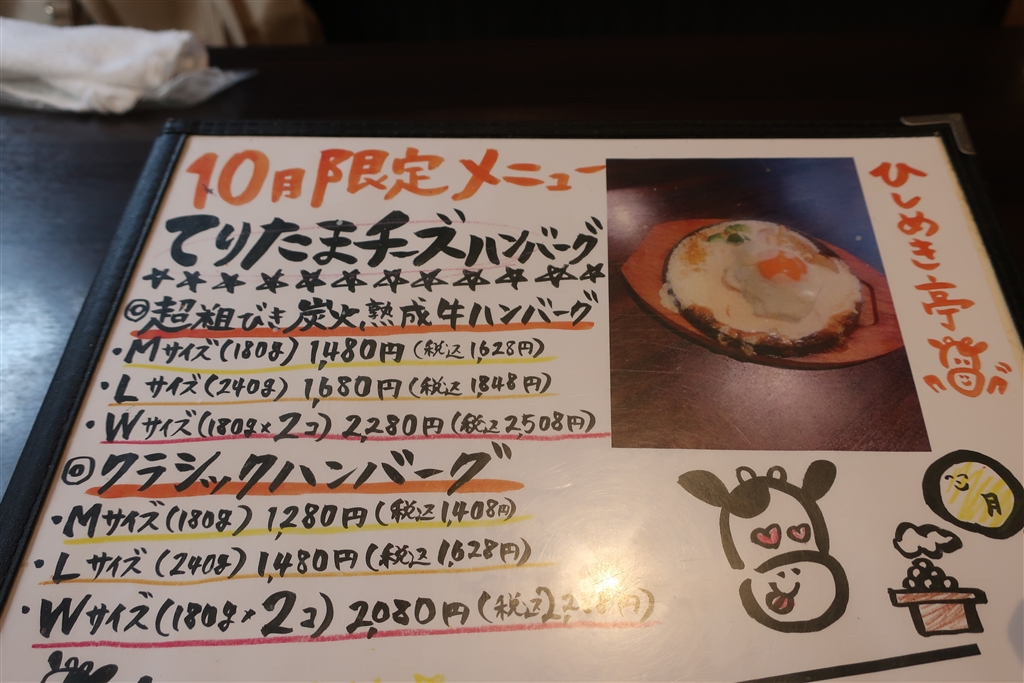 10月限定メニュー
てりたまチーズハンバーグ
◎超粗びき炭火熟成牛ハンバーグ
・Mサイズ(180g) 1,480円(税込1,628円)
・Lサイズ(240g) 1,680円(税込1,848円)
・Wサイズ(180g×2コ) 2,280円(税込2,508円)
◎クラシックハンバーグ
・Mサイズ(180g) 1,280円(税込1,408円)
・Lサイズ(240g) 1,480円(税込1,628円)
・Wサイズ(180g×2コ) 2,080円(税込2,
ひしめき亭
月